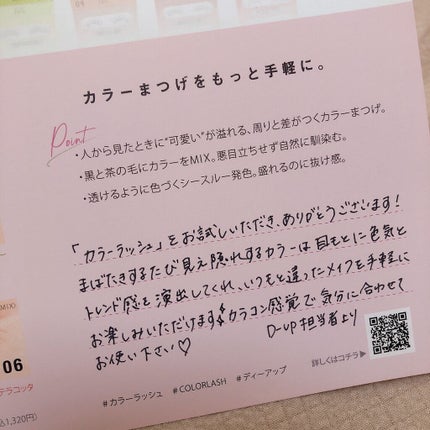 04
カラーまつげをもっと手軽に。
Point
・人から見たときに“可愛い”が溢れる、周りと差がつくカラーまつげ。
・黒と茶の毛にカラーをMIX。悪目立ちせず自然に馴染む。
・透けるように色づくシースルー発色。盛れるのに抜け感。
「カラーラッシュ」をお試しいただき、ありがとうございます！
まばたきするたび見え隠れするカラーは目もとに色気と
トレンド感を演出してくれ、いつもと違ったメイクを手軽に
お楽しみいただけます カラコン感覚で気分に合わせて
お使い下さい♡
D-UP担当者より
詳しくはコチラ▶
#カラーラッシュ #COLORLASH #ディーアップ
MIX)
06
テラコッタ
込1,320円)